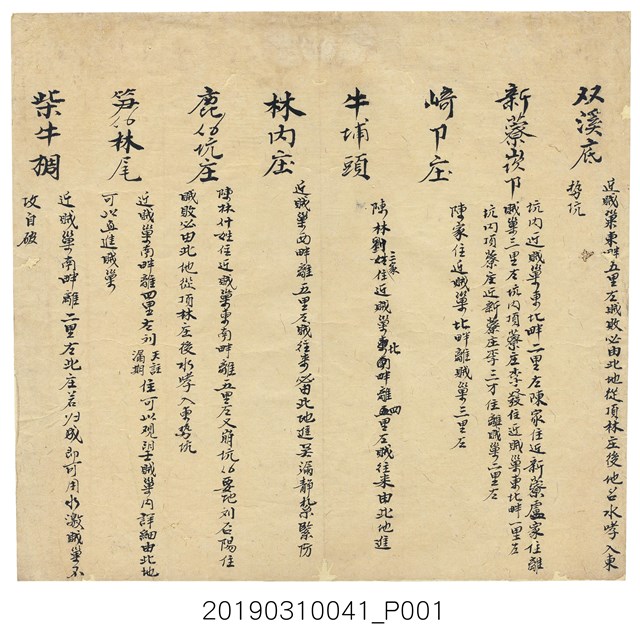 双溪底
近賊巢東畔五里左賊敗必由北地從頂林庄後地名水哮入東
勢坑
新藔崁下
坑內近賊巢東北畔二里左陳家住近新藔盧家住離
賊巢三里左坑內頂藔庄李發住近賊巢東北畔一里左
坑內頂藔庄近新藔庄李三才住離賊巢二里左
崎下庄
陳家住近賊巢北畔離賊巢三里左
牛埔頭
陳林劉三家住近賊巢北畔離四里左賊往來由北地進
林內庄
近賊巢西畔離五里左賊往來必由北地進吴漏靜紮緊防
鹿仔坑庄
陳林什姓住近賊巢東南畔離五里左又府坑仔要地列石陽住
賊敗必由北地從頂林庄後水哮入東势坑
笋仔林尾
近賊巢南畔離四里左列天註漏期住可以观望賊巢內詳細由北地
可以直進賊巢
柴牛椆
近賊巢南畔離二里左北庄若归咸即可用水激賊巢不
攻自破
20190310041_P001